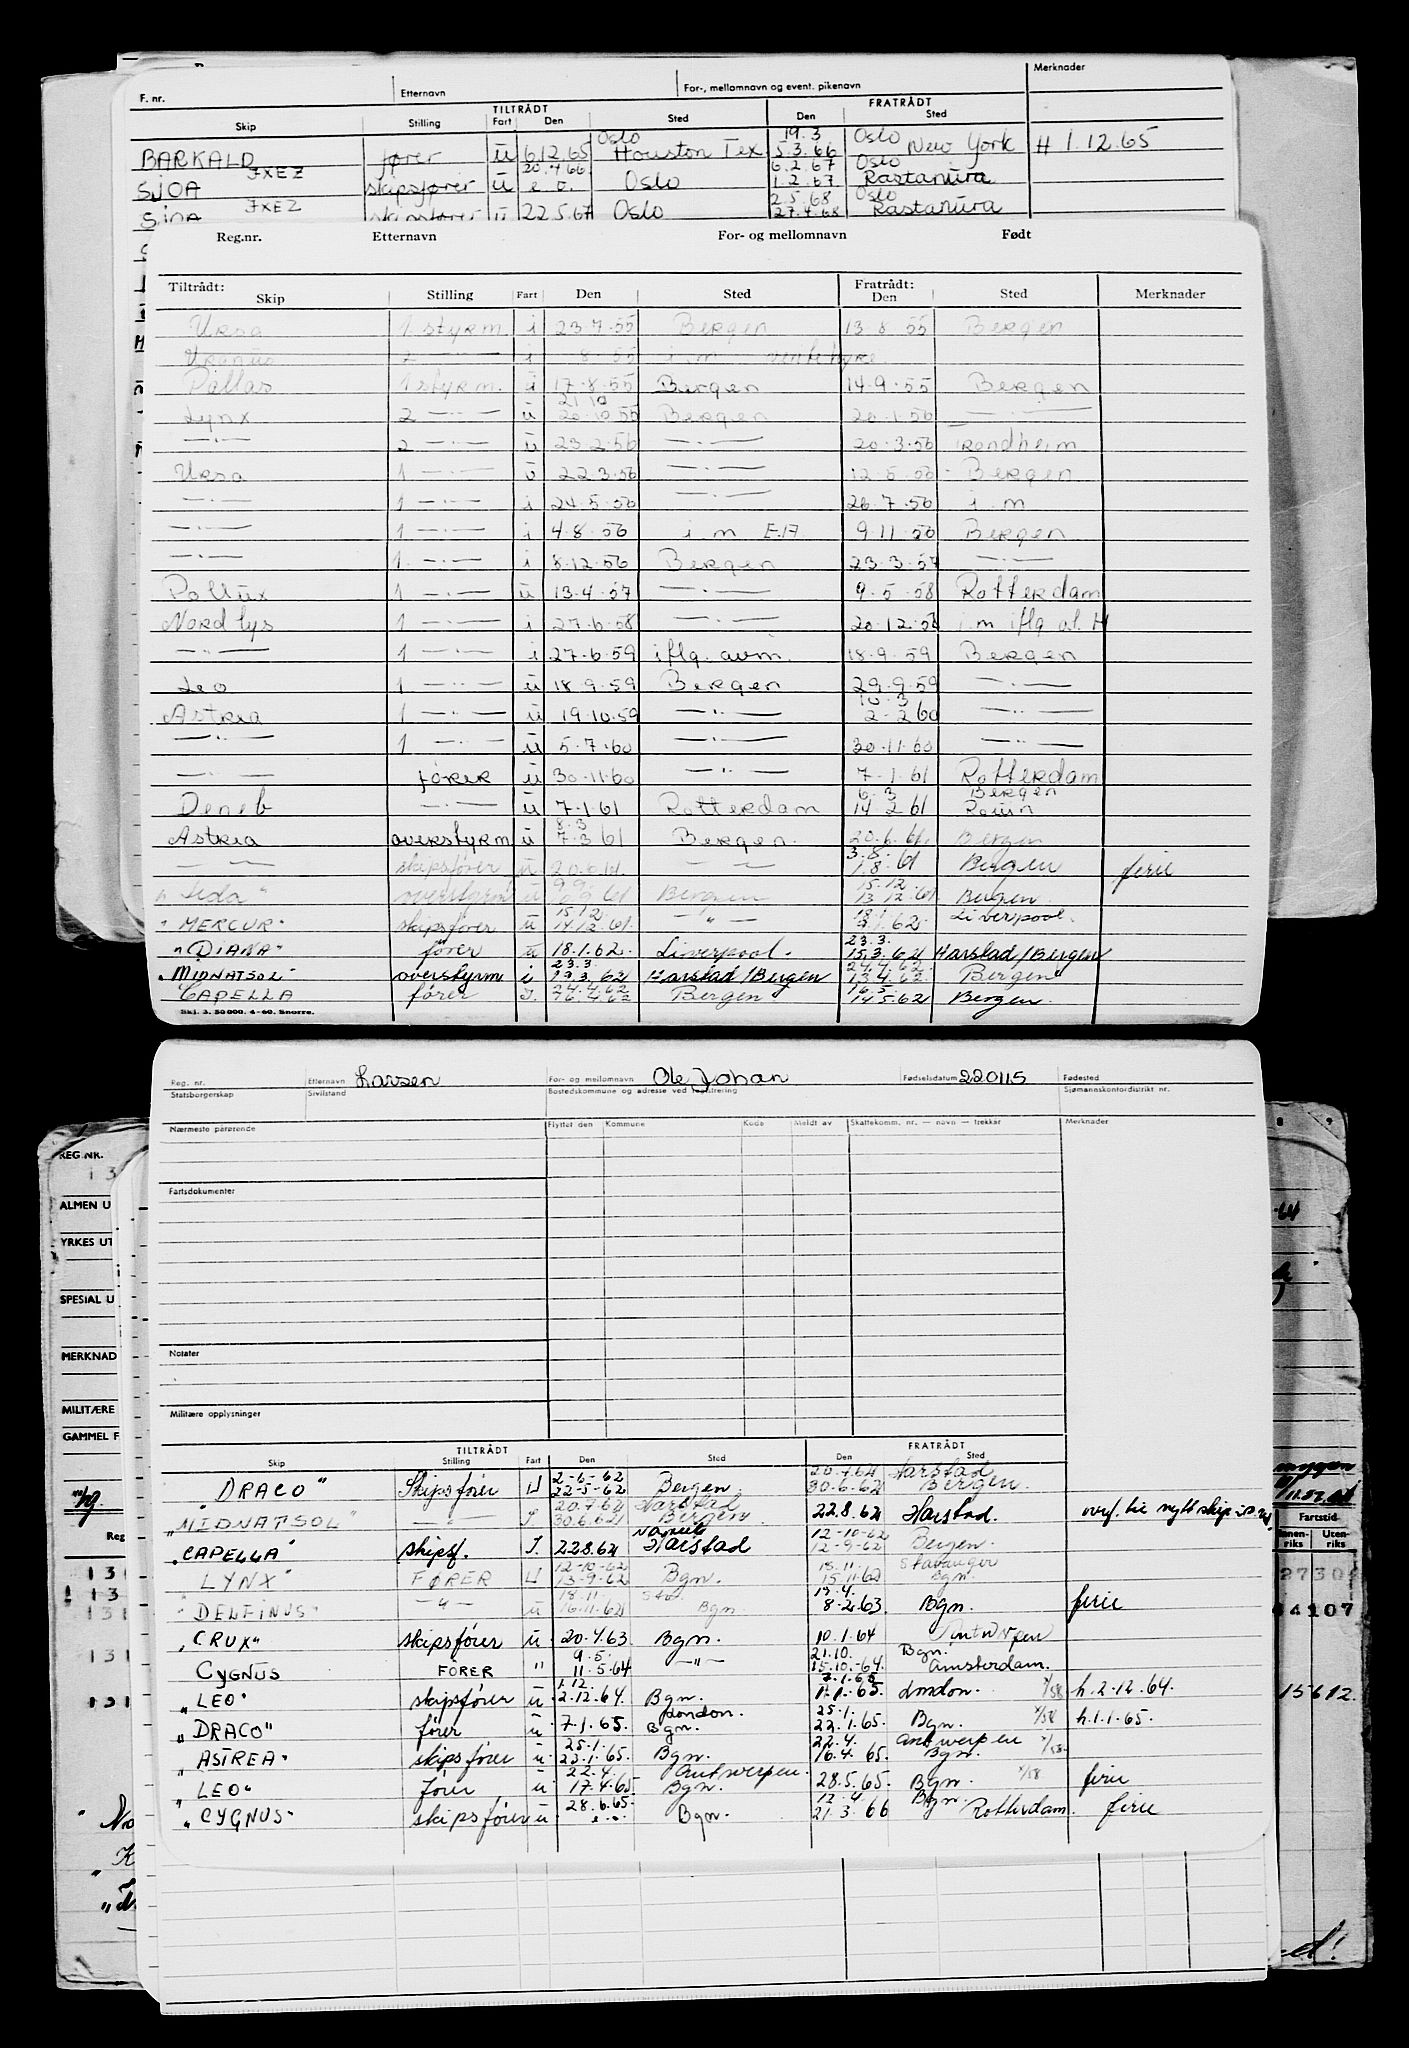 F. nr. Etternavn For-, mellomnavn og event. pikenavn Merknader
TILTRÅDT FRATRÅDT
Skip Stilling Fart Den Sted Den Sted
Oslo 19.3 Oslo
BARKALD fører u 6.12.65 Houston Tex 5.3.66 New York H 1.12.65
JXEZ 20.4.66 6.2.67 Oslo
SJOA skipsfører u e.o. Oslo 1.2.67 Rastanura
JXEZ 2.5.68 Oslo
SJOA skipsfører u 22.5.67 Oslo 27.4.68 Rastanura
Reg.nr. Etternavn For- og mellomnavn Født
Tiltrådt: Fratrådt:
Skip Stilling Fart Den Sted Den Sted Merknader
Ursa 1 styrm i 23.7.55 Bergen 13.8.55 Bergen
Uranus 2 —"— i 8.55 i.m ventehyre
Pallas 1 styrm. u 17.8.55 Bergen 14.9.55 Bergen
21.10
Lynx 2 —"— u 20.10.55 Bergen 20.1.56 —"—
—"— 2 —"— u 23.2.56 —"— 20.3.56 Trondheim
Ursa 1 —"— u 22.3.56 —"— 12.5.56 Bergen
—"— 1 —"— i 24.5.56 —"— 26.7.56 i.m
—"— 1 —"— i 4.8.56 i.m E.17. 9.11.56 Bergen
—"— 1 —"— i 8.12.56 Bergen 23.3.57 —"—
Pollux 1 —"— u 13.4.57 —"— 9.5.58 Rotterdam
Nordlys 1 —"— i 27.6.58 —"— 20.12.58 i.m iflg al. H
—"— 1 —"— i 27.6.59 iflg. avm. 18.9.59 Bergen
Leo 1 —"— u 18.9.59 Bergen 29.9.59 —"—
10.3
Astrea 1 —"— u 19.10.59 —"— 2-2 60 —"—
—"— 1 —"— u 5.7.60 —"— 30.11.60 —"—
—"— fører u 30.11.60 —"— 7.1.61 Rotterdam
6.3 Bergen
Deneb —"— u 7.1.61 Rotterdam 14 2 61 Rouen
8.3
Astrea overstyrm u 7.3 61 Bergen. 20.6.61. Bergen
3.8.
— — skipsfører u 20.6.61 — — 1.8.61 Bergen ferie
9.9 15.12
"Leda" overstyrm u 61 Bergen 13 12.61 Bergen
15.12 18.1
"MERCUR" skipsfører u 14.12.61. —"— 62. Liverpool.
23.3.
"DIANA" fører u 18.1.62. Liverpool. 15.3.62 Harstad/Bergen
23.3 24.4.62.
"MIDNATSOL" overstyrm i 19.3.62 Harstad/Bergen 13.4.62 Bergen
24.4.62 16.5.
CAPELLA fører I. 16.4.62 Bergen 14.5.62 Bergen.
Skj. 3. 50 000. 4-60. Snorre.
Reg. nr. Etternavn Larsen For- og mellomnavn Ole Johan Fødselsdatum 220115 Fødested
Statsborgerskap Sivilstand Bostedskommune og adresse ved registrering Sjømannskontordistrikt nr.
Nærmeste pårørende Flyttet den Kommune Kode Meldt av Skattekomm. nr. — navn — trekkår Merknader
Fartsdokumenter
Notater
Militære opplysninger
TILTRÅDT FRATRÅDT
Skip Stilling Fart Den Sted Den Sted
2-6-62 20.7.62 Harstad
"DRACO" Skipsfører U 22-5-62 Bergen. 30.6.62 Bergen.
20.7.62 Harstad
"MIDNATSOL" —"— I. 30.6.62 Bergen 22.8.62 Harstad. overf. til nytt skip
12-10-62
"CAPELLA" skipsf. I. 22.8.62 Harstad 12-9-62 Bergen.
12-10-62 18.11. Stavanger
LYNX" FØRER U 13-9-62 Bgn. 15.11.62 Bgn.
18.11 19.4.
"DELFINUS" —"— u 16.11.62 Bgn. 8.2.63 Bgn. ferie
"CRUX" skipsfører u 20.4.63 Bgn. 10.1.64 Antwerpen
9.5. 21.10. Bgn.
CYGNUS FØRER " 11.5.64 —"— 15.10.-64. Amsterdam.
1.12. 7.1.65
"LEO" skipsfører u 2.12.64. Bgn. 1.1.65. London. 1/58 h.2.12.64.
London. 25.1.
"DRACO" fører u 7.1.65. Bgn. 22.1.65. Bgn. 1/58 h.1.1.65.
25.1. 22.4. Antwerpen
"ASTREA" skipsfører u. 23.1.65. Bgn. 16.4.65. Bgn. 1/58.
22.4. Antwerpen.
"LEO" fører u 17.4.65 Bgn. 28.5.65. Bgn. 1/58 ferie
28.6.65. 12.4. Bgn
"CYGNUS" skipsfører u e.o. Bgn. 21.3.66 Rotterdam. ferie
REG.NR.
13
ALMEN U
YRKES UT
SPESIAL U
MERKNAD
MILITÆRE
GAMMEL F.
Reg
131
131
131
131
131
8 9
Fartstid
Innen-riks Uten-riks
2730
44107
15612.